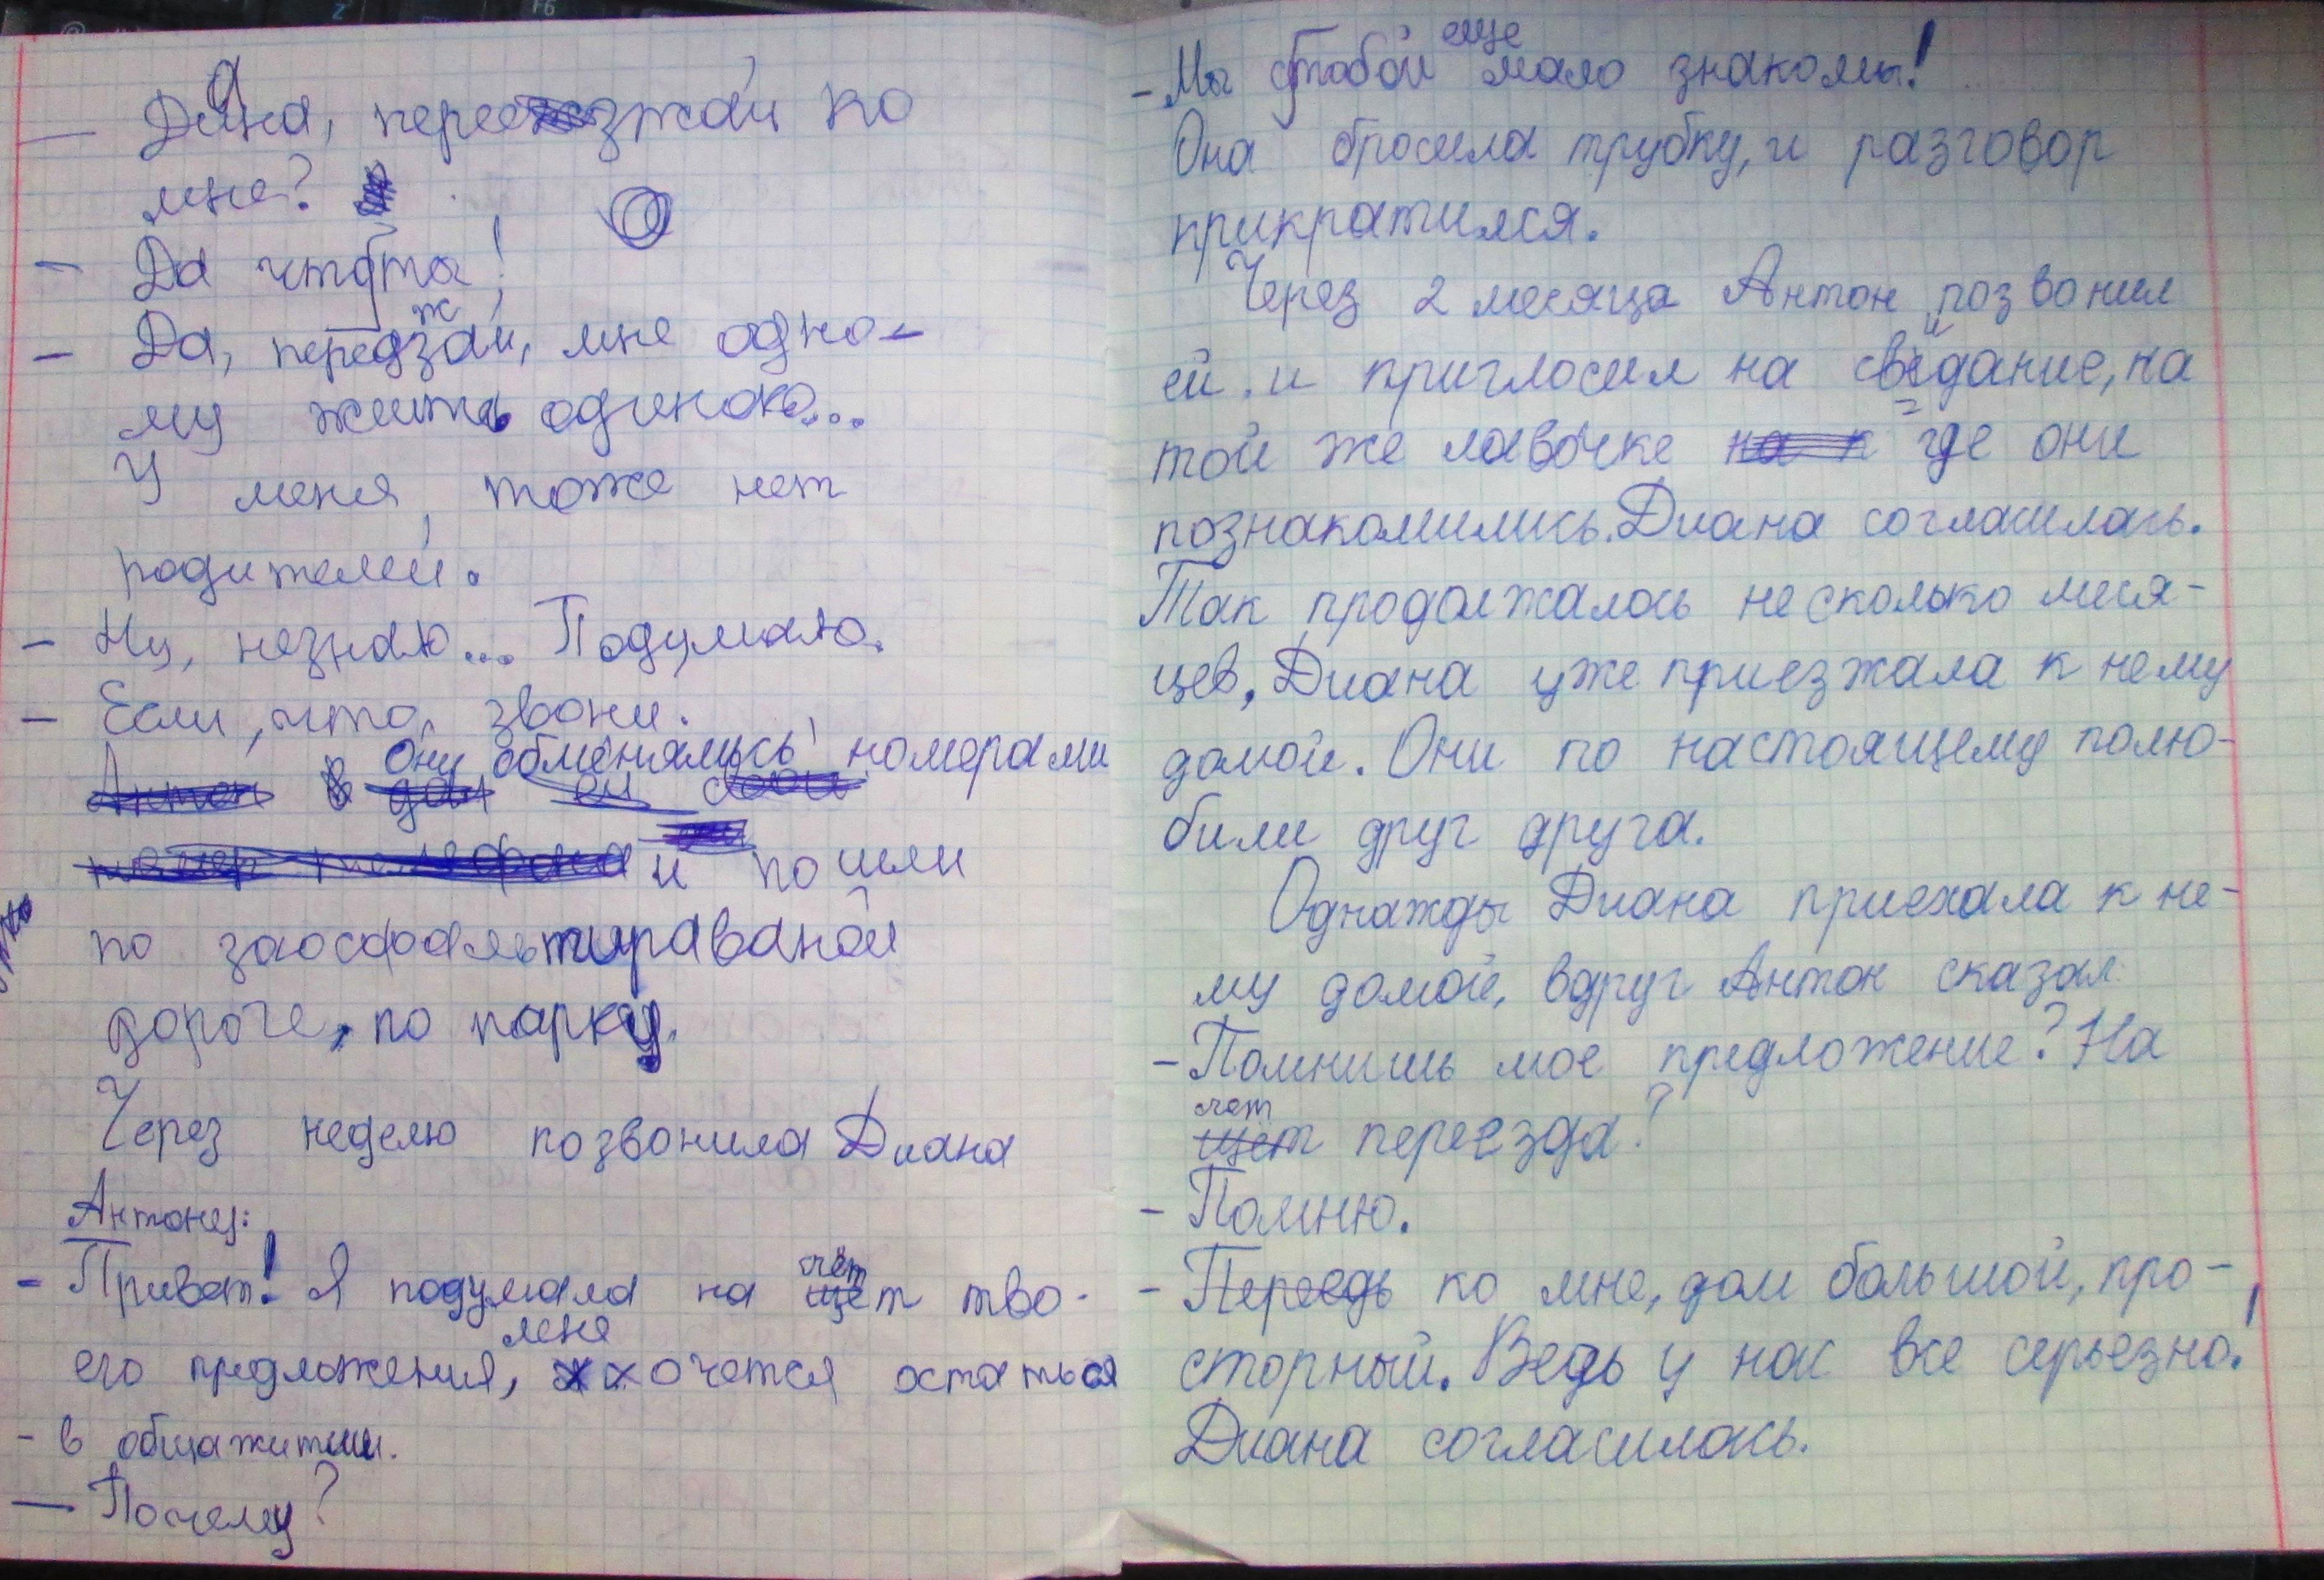 — Диана, переезжай ко
мне?
— Да что ты!
— Да, передзжай, мне одно-
му жить одиноко...
У меня, тоже нет
родителей.
— Ну, незнаю... Подумаю.
— Если, что, звони.
Они обменялись номерами
Антон в дал ей свой
номер телефона и пошли
по заосфальтираваной
дороге, по парку.
Через неделю позвонила Диана
Антону:
- Привет! Я подумала на счёт тво-
его предложения, меня хочется остаться
- в общажитии.
— Почему?
- Мы с тобой еще мало знакомы!
Она бросила трубку, и разговор
прикратился.
Через 2 месяца Антон позвонил
ей и приглосил на свидание, на
той же лавочке на к где они
познакомились. Диана согласилась.
Так продолжалось несколько меся-
цев, Диана уже приезжала к нему
домой. Они по настоящему полю-
били друг друга.
Однажды Диана приехала к не-
му домой, вдруг Антон сказал:
- Помнишь мое предложение? На
счет щёт переезда?
- Помню.
- Переедь ко мне, дом большой, про-
сторный. Ведь у нас все серьезно!
Диана согласилась.